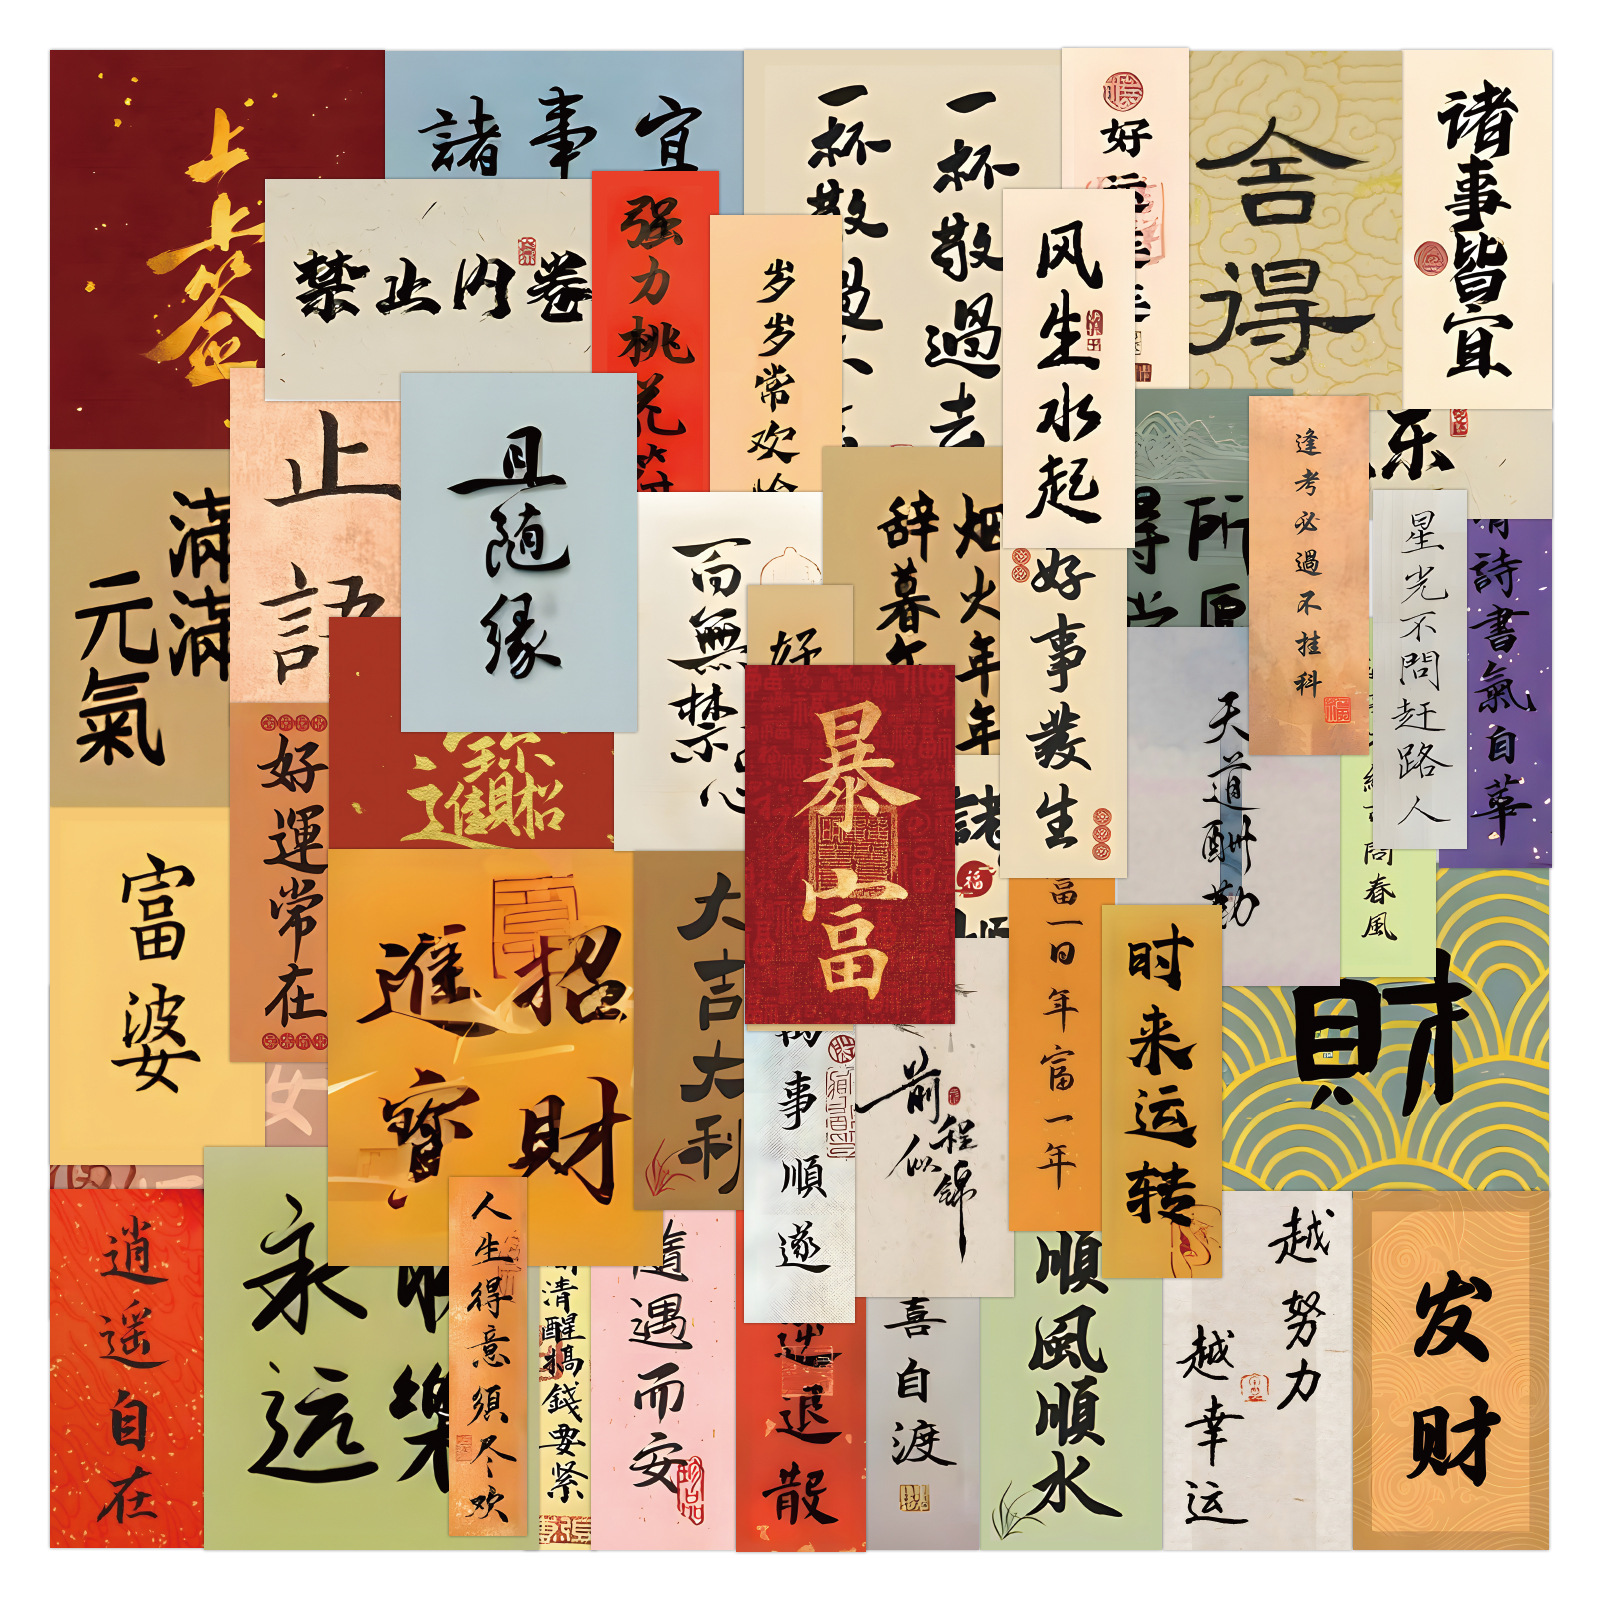 上上签
諸事宜
一杯敬過去
一杯敬過
好运
舍得
诸事皆宜
禁止内卷
强力桃花符
岁岁常欢愉
风生水起
止語
且随缘
百無禁忌
辞暮
烟火年年
得所
逢考必過不挂科
乐
星光不問赶路人
詩書氣自華
元氣
滿滿
好
好事發生
天道酬勤
問春風
好運常在
招財進寶
暴富
諸
福
順
富婆
招財
進寶
大吉大利
萬事順遂
前程似錦
富一日年富一年
时来运转
財
女
逍遥自在
永遠
樂
人生得意须尽欢
清醒搞錢要紧
隨遇而安
逆退散
喜自渡
順風順水
越努力
越幸运
发财